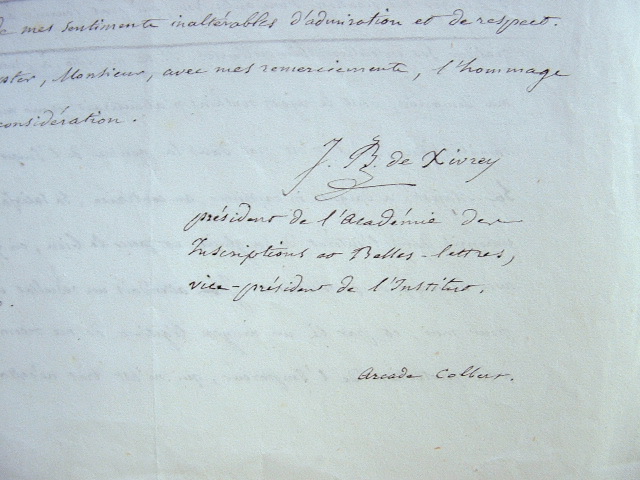 de mes sentiments inaltérables d'admiration et de respect.
Monsieur, avec mes remerciements, l'hommage
considération.
J. B. de Xivrey
président de l'Académie des
Inscriptions et Belles-lettres,
vice-président de l'Institut.
Arcade Colbert.